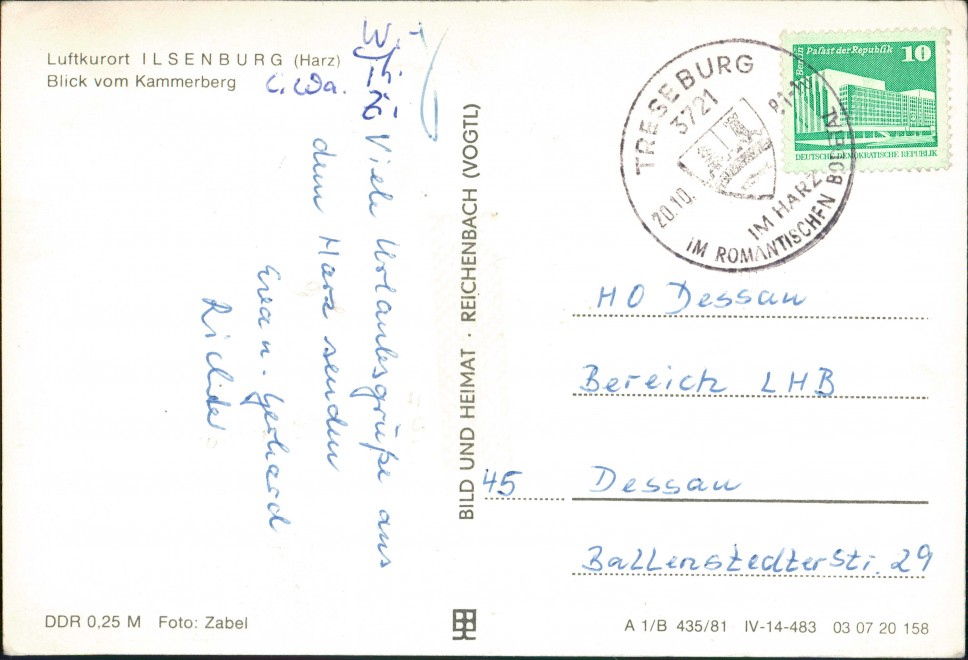 Luftkurort ILSENBURG (Harz)
Blick vom Kammerberg
Viele Urlaubsgrüße aus
dem Harz senden
Eva u. Gerhard
Richter
BILD UND HEIMAT · REICHENBACH (VOGTL)
TRESEBURG
3721
20.10.
IM HARZ
IM ROMANTISCHEN BODETAL
Berlin Palast der Republik 10
DEUTSCHE DEMOKRATISCHE REPUBLIK
HO Dessau
Bereich LHB
45 Dessau
Ballenstedterstr. 29
DDR 0,25 M Foto: Zabel
A 1/B 435/81 IV-14-483 03 07 20 158